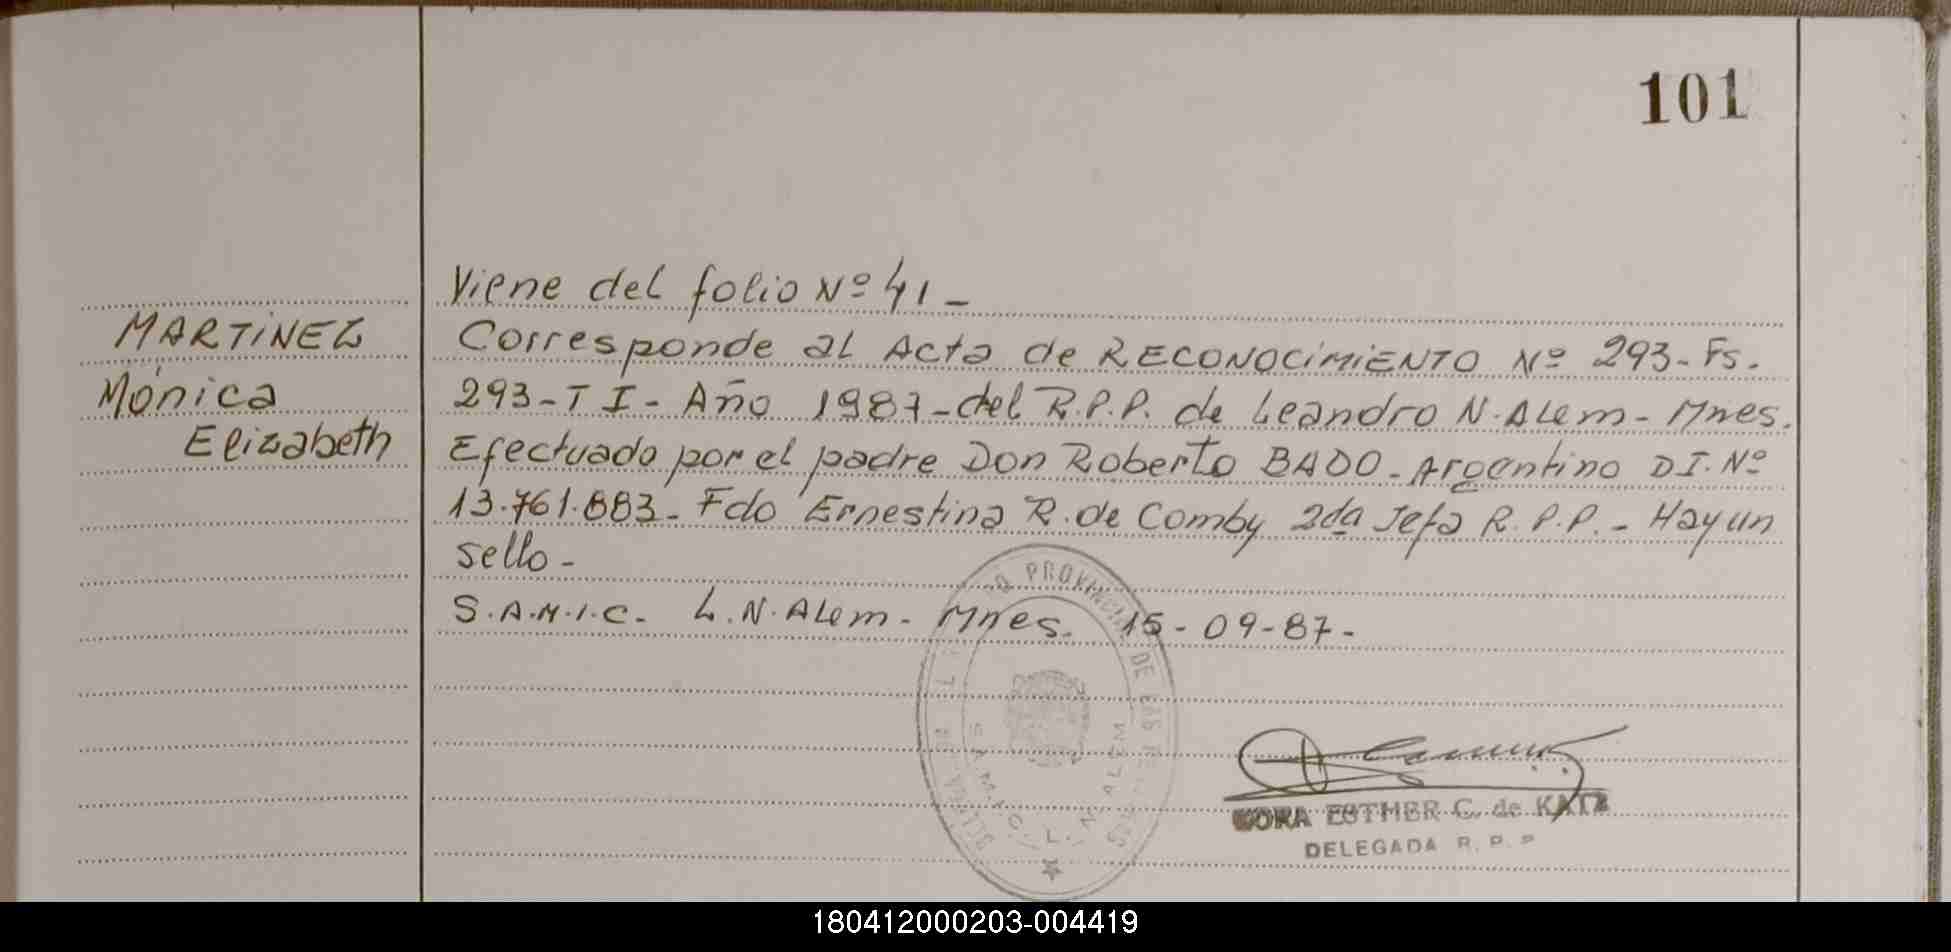 101
Viene del folio Nº 41-
MARTINEZ
Mónica
Elizabeth
Corresponde al Acta de RECONOCIMIENTO Nº 293-Fs.
293-T I- Año 1987-del R.P.P. de Leandro N. ALem- Mnes.
Efectuado por el padre Don Roberto BADO-Argentino D I. Nº
13.761.883- Fdo Ernestina R. de Comby 2da Jefa R.P.P.- Hay un
sello-
S.A.M.I.C. L.N. ALem- Mnes. 15-09-87-
PROVINCIAL DE LAS
S.A.M.I.C. L. N. ALEM
ESTHER C. de KATZ
DELEGADA R. P. P
180412000203-004419